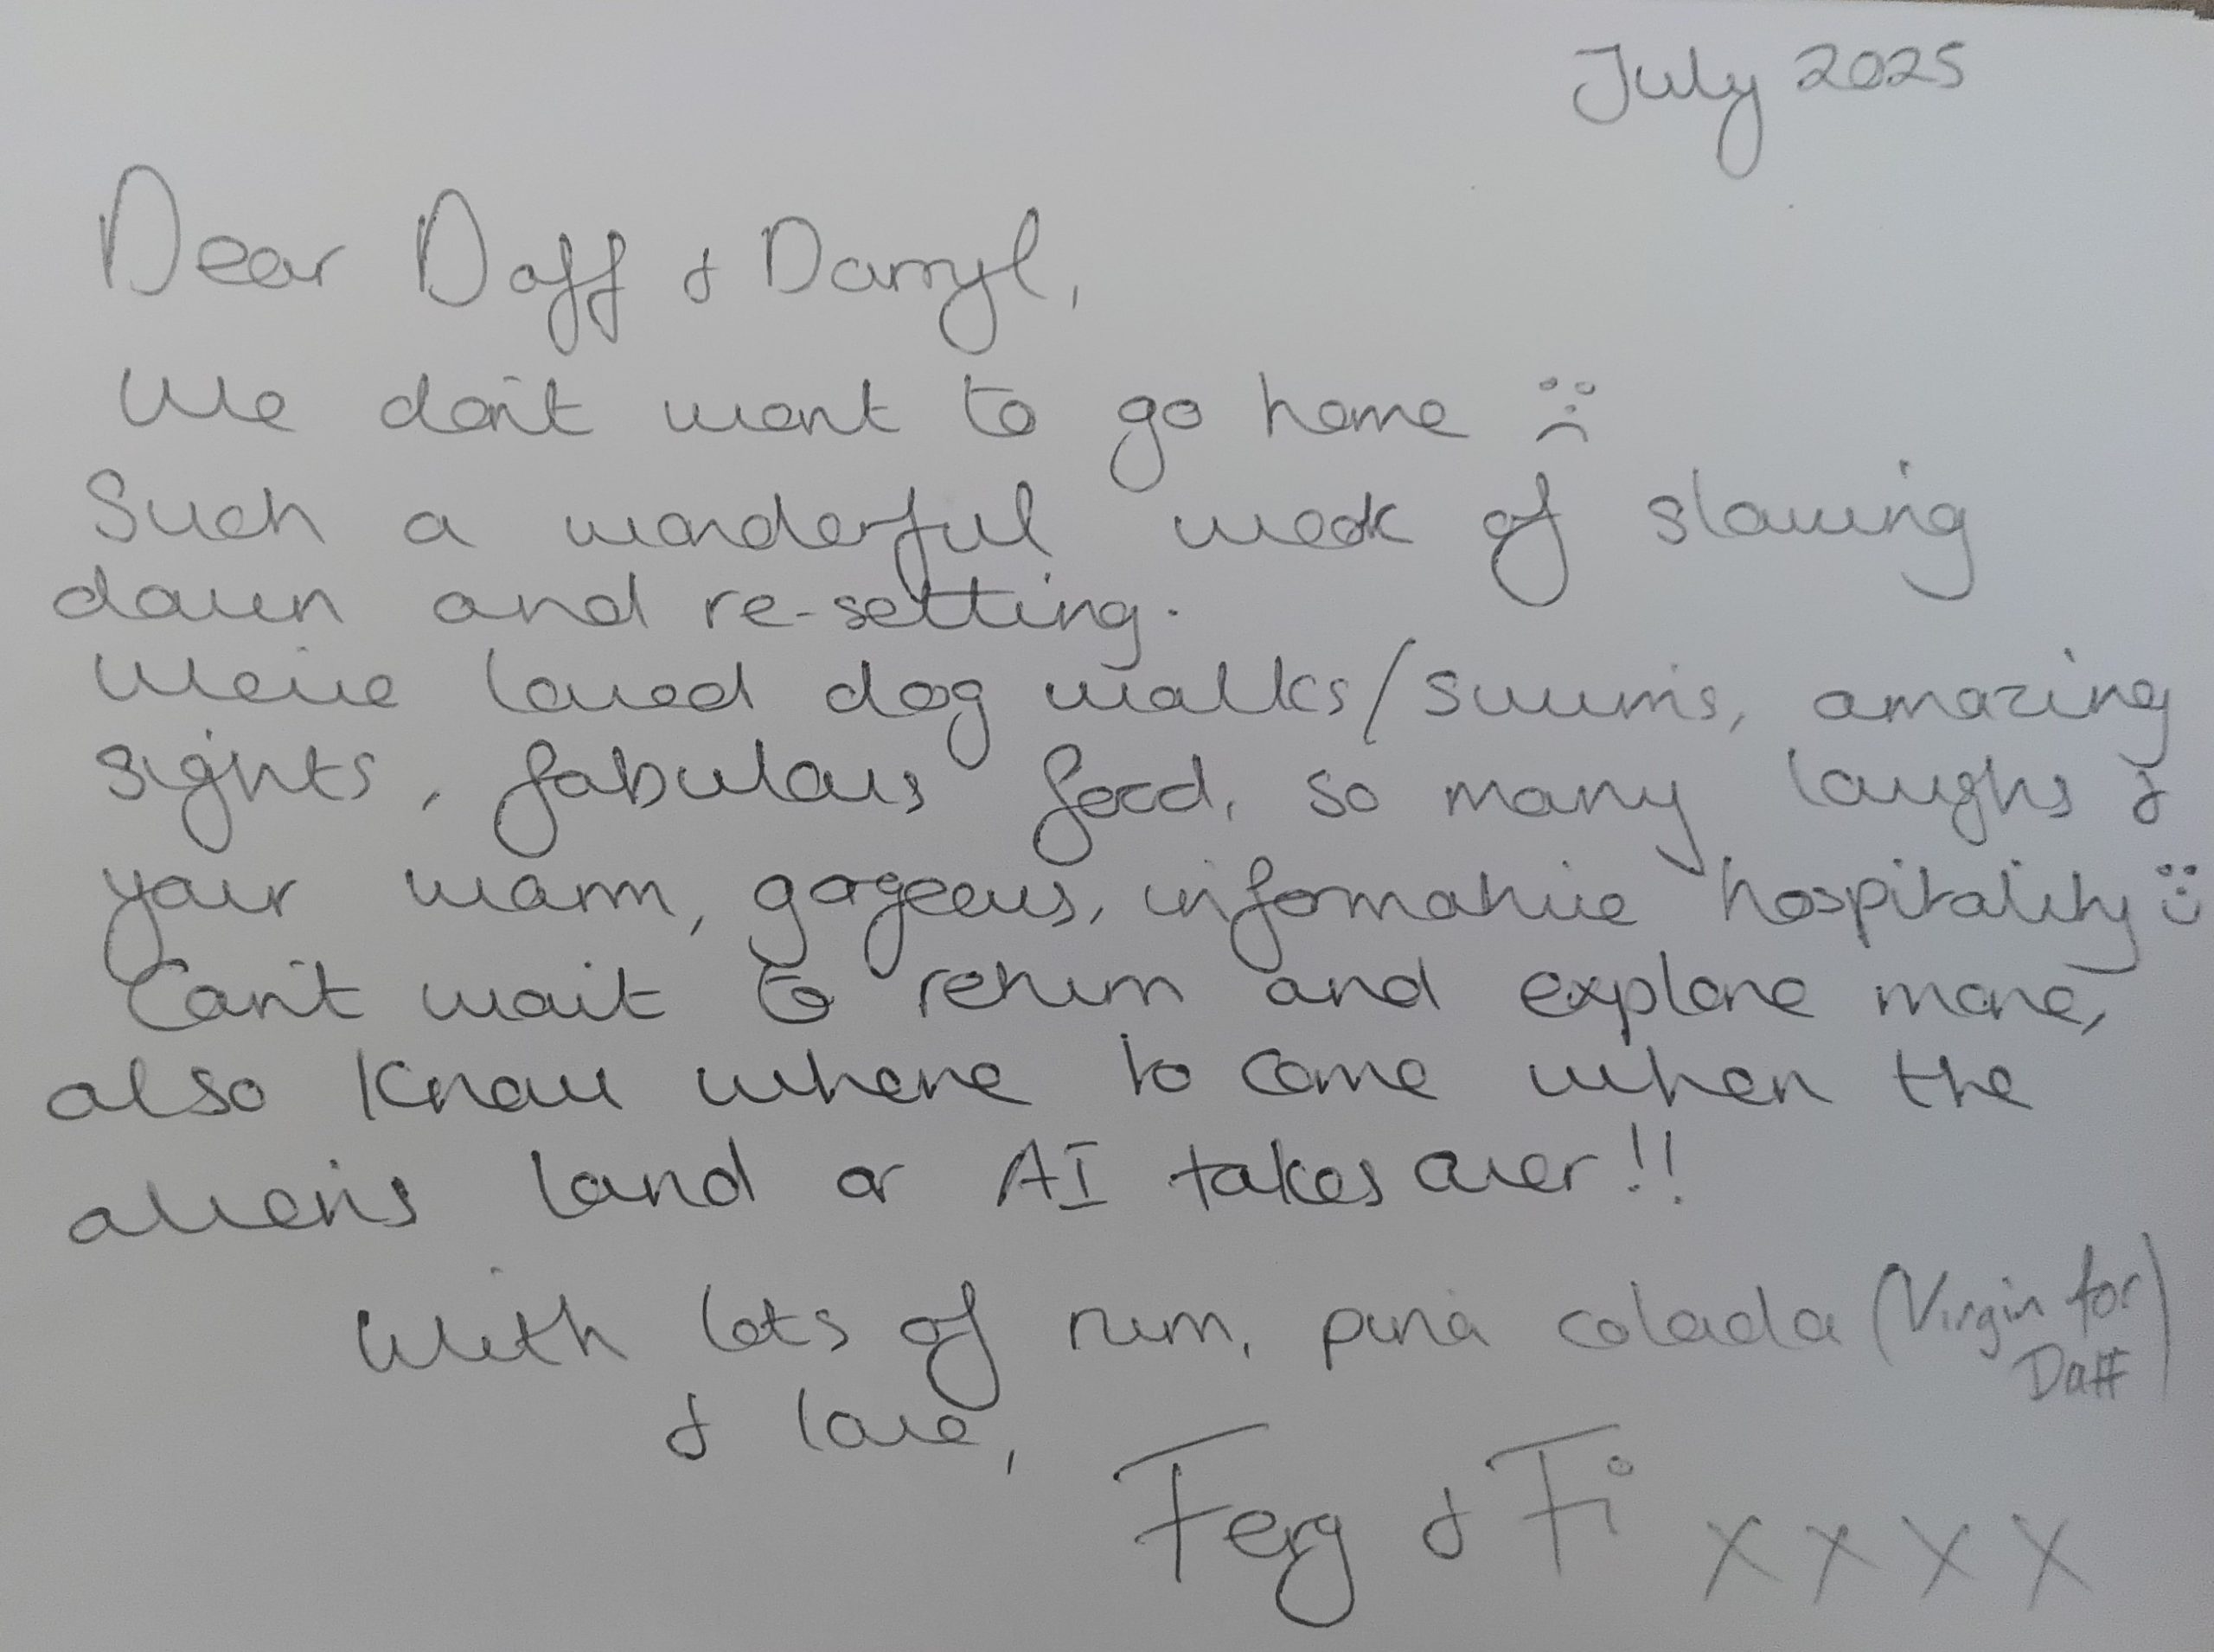 July 2025
Dear Daff & Darryl,
We don't want to go home ☹
Such a wonderful week of slowing
down and re-setting.
We've loved dog walks/swims, amazing
sights, fabulous food, so many laughs &
your warm, gogeous, informative hospitality ☺
Can't wait to return and explore more,
also know where to come when the
aliens land or AI takes over!!
With lots of rum, pina colada (Virgin for
Daff)
& love,
Ferg & Fi xxxx